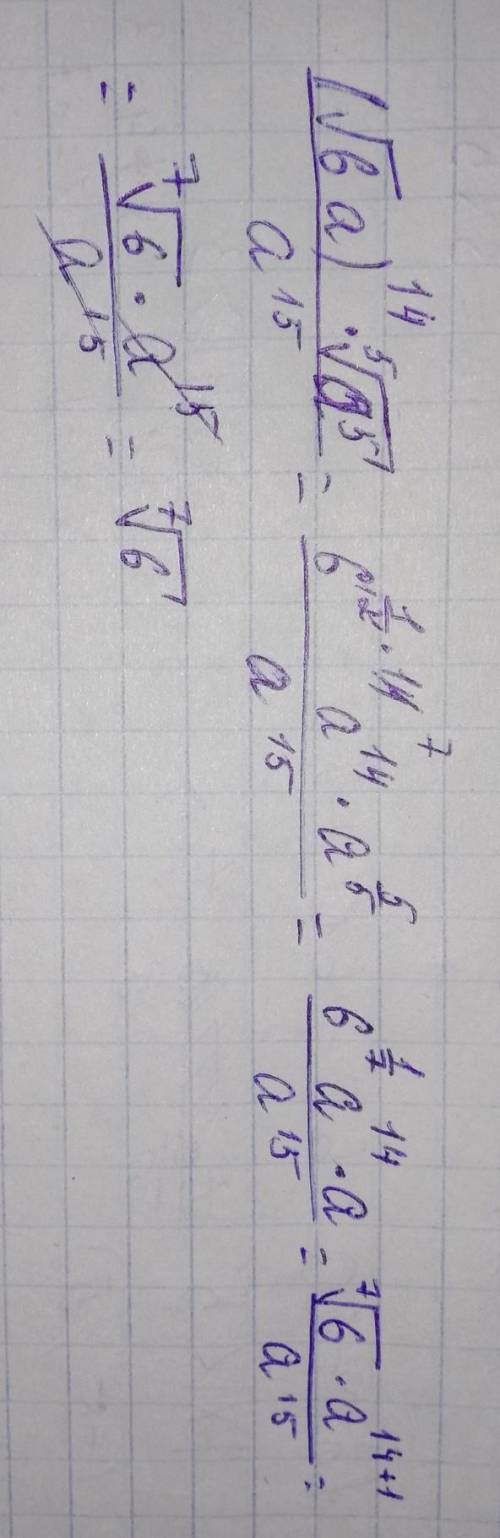 (√6 a)¹⁴ · ⁵√a⁵ / a¹⁵ = 6^(1/2 · 14 7) a¹⁴ · a^(5/5) / a¹⁵ = 6^(1/7) a¹⁴ · a / a¹⁵ = ⁷√6 · a¹⁴⁺¹ / a¹⁵ =
= ⁷√6 · a¹⁵ / a¹⁵ = ⁷√6